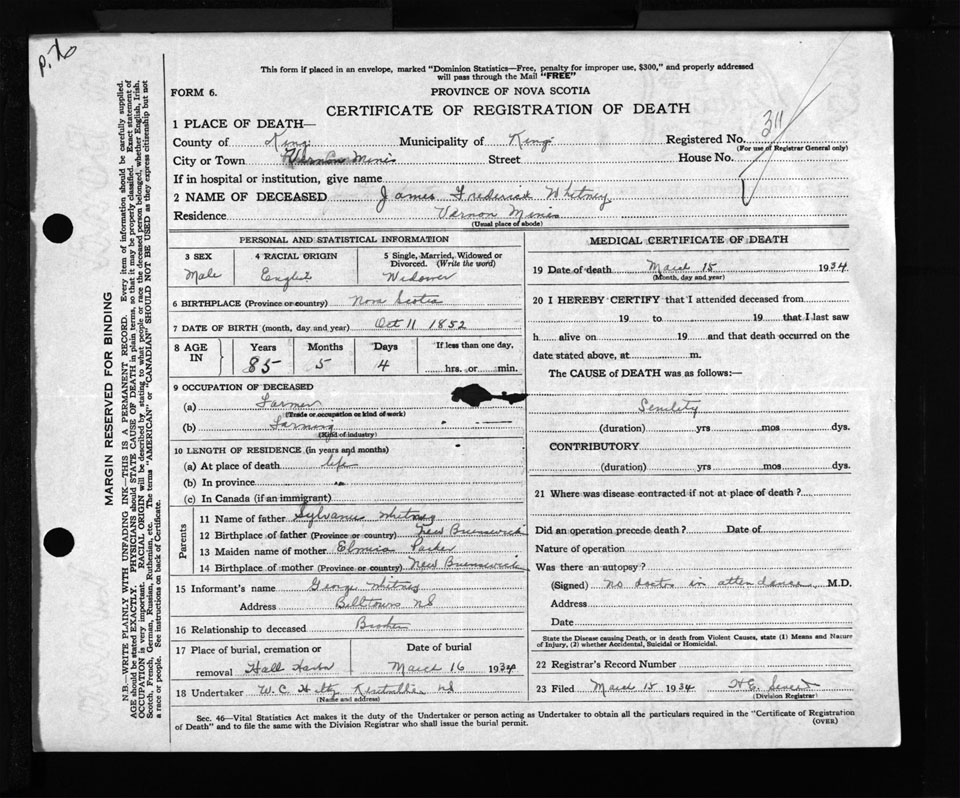 p. 20
This form if placed in an envelope, marked "Dominion Statistics—Free, penalty for improper use, $300," and properly addressed
will pass through the Mail "FREE"
FORM 6.
PROVINCE OF NOVA SCOTIA
CERTIFICATE OF REGISTRATION OF DEATH
311
1 PLACE OF DEATH—
County of Kings Municipality of Kings Registered No.
(For use of Registrar General only)
City or Town Vernon Mines Street House No.
If in hospital or institution, give name
2 NAME OF DECEASED James Frederick Whitney
Residence Vernon Mines
(Usual place of abode)
PERSONAL AND STATISTICAL INFORMATION
3 SEX
Male
4 RACIAL ORIGIN
English
5 Single, Married, Widowed or
Divorced. (Write the word)
Widower
6 BIRTHPLACE (Province or country) Nova Scotia
7 DATE OF BIRTH (month, day and year) Oct 11 1852
8 AGE
IN
Years
85
Months
5
Days
4
If less than one day,
hrs. or min.
9 OCCUPATION OF DECEASED
(a) Farmer
(Trade or occupation or kind of work)
(b) Farming
(Kind of industry)
10 LENGTH OF RESIDENCE (in years and months)
(a) At place of death life
(b) In province
(c) In Canada (if an immigrant)
Parents
11 Name of father Sylvanus Whitney
12 Birthplace of father (Province or country) New Brunswick
13 Maiden name of mother Elmira Parker
14 Birthplace of mother (Province or country) New Brunswick
15 Informant's name George Whitney
Address Billtown NS
16 Relationship to deceased Brother
17 Place of burial, cremation or
Date of burial
removal Hall Harbor March 16 1934
18 Undertaker W. C. Kentville NS
(Name and address)
MEDICAL CERTIFICATE OF DEATH
19 Date of death March 15 1934
(Month, day and year)
20 I HEREBY CERTIFY that I attended deceased from
19 to 19 that I last saw
h alive on 19 and that death occurred on the
date stated above, at m.
The CAUSE of DEATH was as follows:—
Senility
(duration) yrs mos dys.
CONTRIBUTORY
(duration) yrs mos dys.
21 Where was disease contracted if not at place of death?
Did an operation precede death? Date of
Nature of operation
Was there an autopsy?
(Signed) no doctor in attendance M.D.
Address
Date
State the Disease causing Death, or in death from Violent Causes, state (1) Means and Nature
of Injury, (2) whether Accidental, Suicidal or Homicidal.
22 Registrar's Record Number
23 Filed March 15 1934 H E
(Division Registrar)
Sec. 46—Vital Statistics Act makes it the duty of the Undertaker or person acting as Undertaker to obtain all the particulars required in the "Certificate of Registration
of Death" and to file the same with the Division Registrar who shall issue the burial permit.
(OVER)
MARGIN RESERVED FOR BINDING
N.B.—WRITE PLAINLY WITH UNFADING INK—THIS IS A PERMANENT RECORD. Every item of information should be carefully supplied.
AGE should be stated EXACTLY. PHYSICIANS should STATE CAUSE OF DEATH in plain terms, so that it may be properly classified. Exact statement of
OCCUPATION is very important. RACIAL ORIGIN will be described by stating to what people or race the deceased person belonged, whether English, Irish,
Scotch, French, German, Russian, Ruthenian, etc. The terms "AMERICAN" or "CANADIAN" SHOULD NOT BE USED as they express citizenship but not
a race or people. See instructions on back of Certificate.